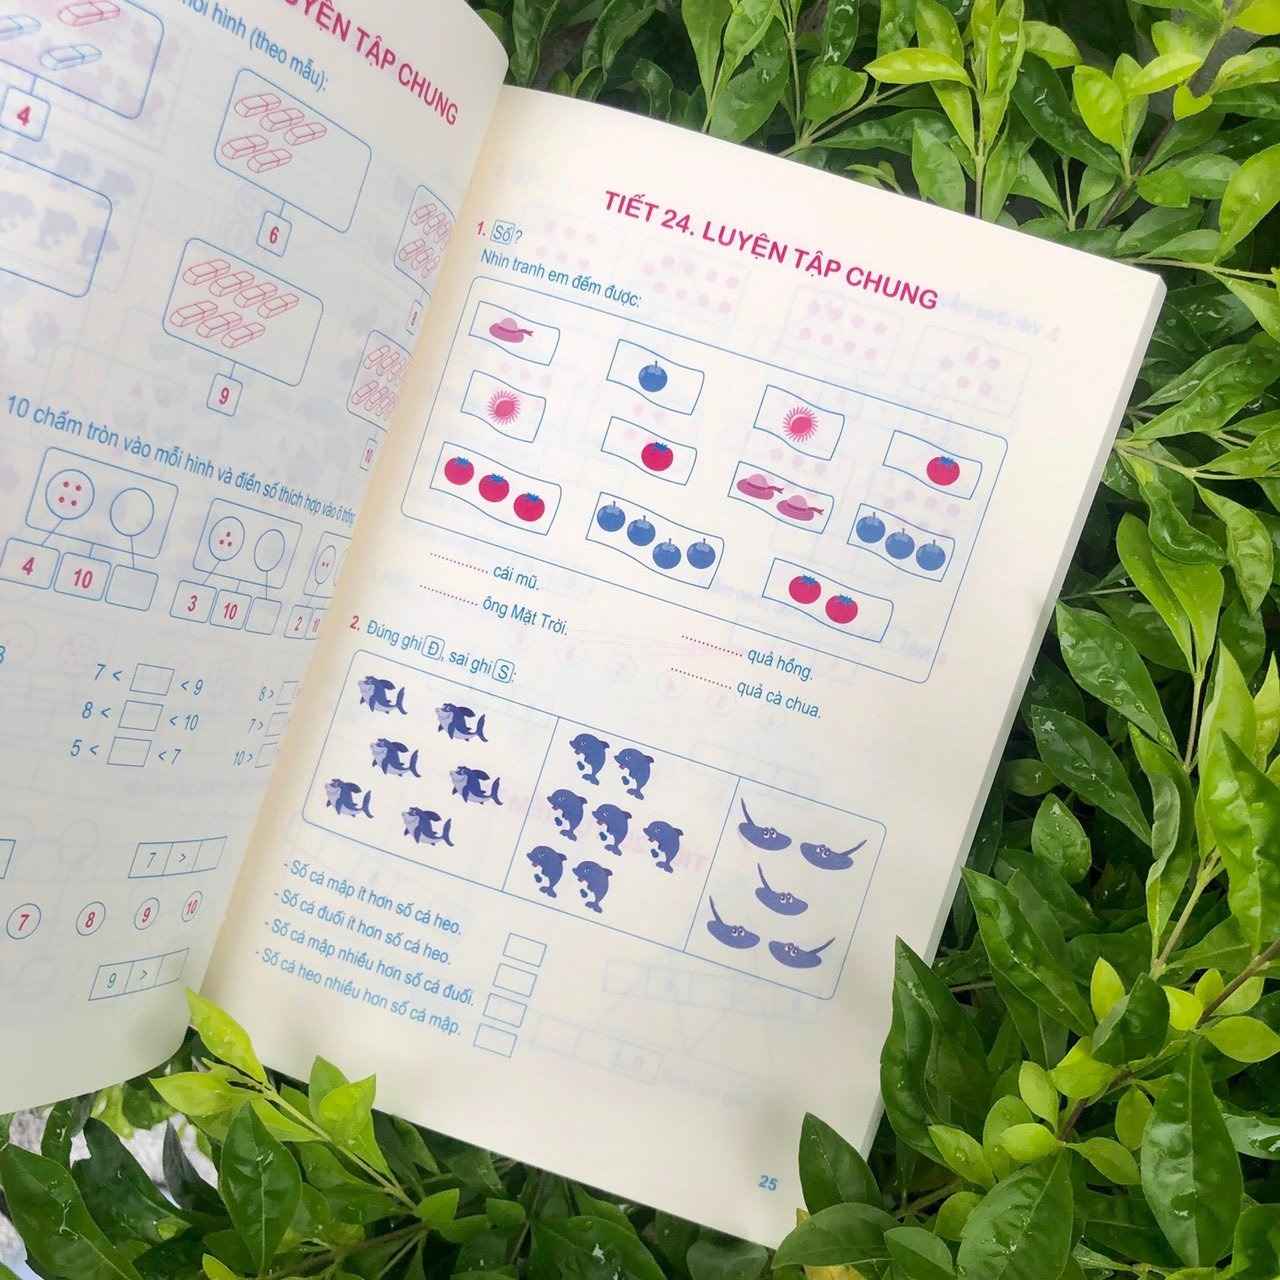 UYỆN TẬP CHUNG
mỗi hình (theo mẫu):
4
6
9
8
10
10 chấm tròn vào mỗi hình và điền số thích hợp vào ô trống
4 10
3 10
2 10
7 < < 9
8 < < 10
5 < < 7
8 >
7 >
10 >
7 >
7 8 9 10
9 >
TIẾT 24. LUYỆN TẬP CHUNG
1. Số ?
Nhìn tranh em đếm được:
............... cái mũ.
............... ông Mặt Trời.
............... quả hồng.
............... quả cà chua.
2. Đúng ghi Đ, sai ghi S:
- Số cá mập ít hơn số cá heo.
- Số cá đuối ít hơn số cá heo.
- Số cá mập nhiều hơn số cá đuối.
- Số cá heo nhiều hơn số cá mập.
25